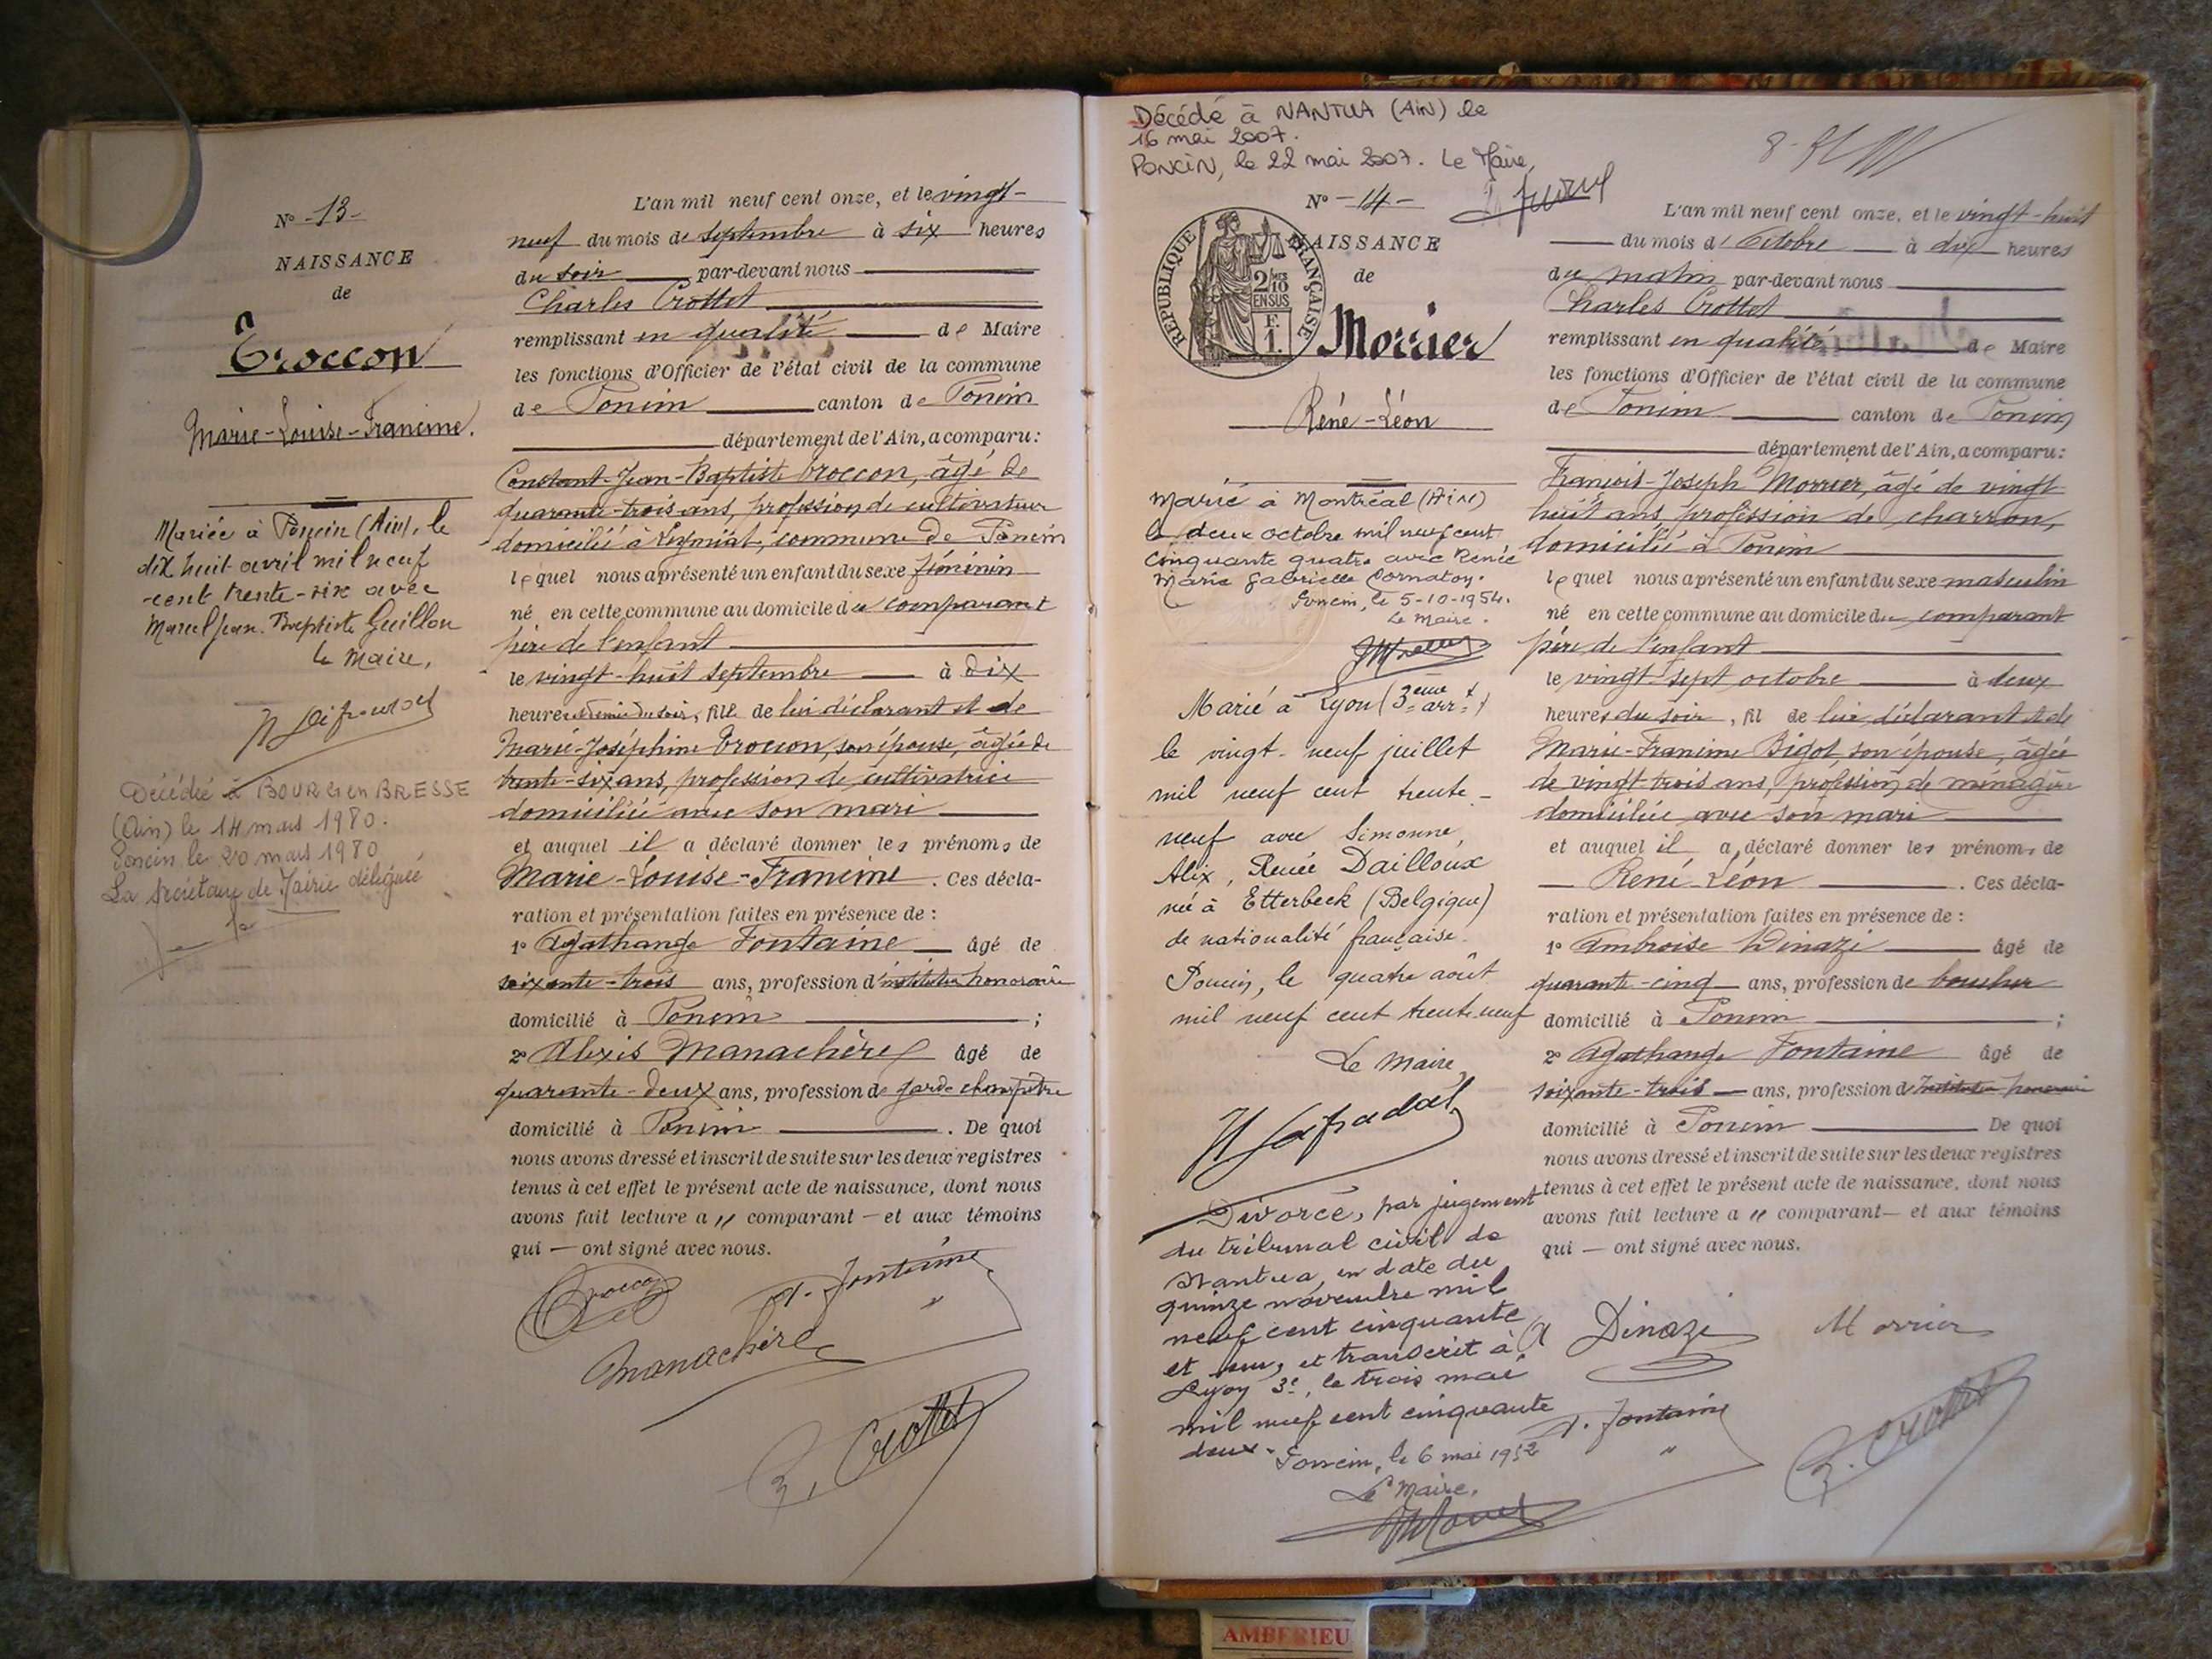 N° -13-
NAISSANCE
de
Troccon
Marie-Louise-Francine.
Mariée à Poncin (Ain), le
dix huit avril mil neuf
cent trente-six avec
Marcel Jean-Baptiste Guillon
Le Maire,
Décédée à BOURG en BRESSE
(Ain) le 14 mars 1980.
Poncin le 20 mars 1980
La Secrétaire de Mairie déléguée
L'an mil neuf cent onze, et le vingt-
neuf du mois de septembre à six heures
du soir par-devant nous
Charles Crottet
remplissant en qualité de Maire
les fonctions d'Officier de l'état civil de la commune
de Poncin canton de Poncin
département de l'Ain, a comparu:
Constant-Jean-Baptiste Troccon, âgé de
quarante-trois ans, profession de cultivateur
domicilié à Leymiat, commune de Poncin
lequel nous a présenté un enfant du sexe féminin
né en cette commune au domicile du comparant
père de l'enfant
le vingt-huit septembre à dix
heures et demie du soir, fille de lui déclarant et de
Marie-Joséphine Troccon, son épouse, âgée de
trente-six ans, profession de cultivatrice
domiciliée avec son mari
et auquel il a déclaré donner les prénoms de
Marie-Louise-Francine. Ces décla-
ration et présentation faites en présence de :
1° Agathange Fontaine âgé de
soixante-trois ans, profession d'instituteur honoraire
domicilié à Poncin ;
2° Alexis Manachère âgé de
quarante-deux ans, profession de garde champêtre
domicilié à Poncin. De quoi
nous avons dressé et inscrit de suite sur les deux registres
tenus à cet effet le présent acte de naissance, dont nous
avons fait lecture a u comparant — et aux témoins
qui — ont signé avec nous.
Troccon
A. Fontaine
Manachère
C. Crottet
Décédé à NANTUA (AiN) le
16 mai 2007.
PONCIN, le 22 mai 2007. Le Maire,
N° -14-
RÉPUBLIQUE FRANÇAISE
2/10
EN SUS
F.
1.
NAISSANCE
de
Morrier
René-Léon
Marié à Montréal (Ain)
le deux octobre mil neuf cent
cinquante quatre avec Renée
Marie Gabrielle Cornaton.
Poncin, le 5-10-1954.
Le Maire.
Marié à Lyon (3ème arrt)
le vingt-neuf juillet
mil neuf cent trente-
neuf avec Simonne,
Alix, Renée Dailloux
née à Etterbeek (Belgique)
de nationalité française.
Poncin, le quatre août
mil neuf cent trente neuf
Le Maire,
Divorcé, par jugement
du tribunal civil de
Nantua, en date du
quinze novembre mil
neuf cent cinquante
et un, et transcrit à
Lyon 3e, le trois mai
mil neuf cent cinquante
deux. Poncin, le 6 mai 1952
Le Maire.
L'an mil neuf cent onze, et le vingt-huit
du mois d'Octobre à dix heures
du matin par-devant nous
Charles Crottet
remplissant en qualité de Maire
les fonctions d'Officier de l'état civil de la commune
de Poncin canton de Poncin
département de l'Ain, a comparu:
François-Joseph Morrier, âgé de vingt
huit ans, profession de charron,
domicilié à Poncin
lequel nous a présenté un enfant du sexe masculin
né en cette commune au domicile du comparant
père de l'enfant
le vingt-sept octobre à deux
heures du soir, fil de lui déclarant et de
Marie-Francine Bigot, son épouse, âgée
de vingt-trois ans, profession de ménagère
domiciliée avec son mari
et auquel il a déclaré donner les prénoms de
René-Léon. Ces décla-
ration et présentation faites en présence de :
1° Ambroise Dinazi âgé de
quarante-cinq ans, profession de boucher
domicilié à Poncin ;
2° Agathange Fontaine âgé de
soixante-trois ans, profession d'Instituteur honoraire
domicilié à Poncin De quoi
nous avons dressé et inscrit de suite sur les deux registres
tenus à cet effet le présent acte de naissance, dont nous
avons fait lecture a u comparant — et aux témoins
qui — ont signé avec nous.
A Dinazi
Morrier
A. Fontaine
C. Crottet
AMBERIEU